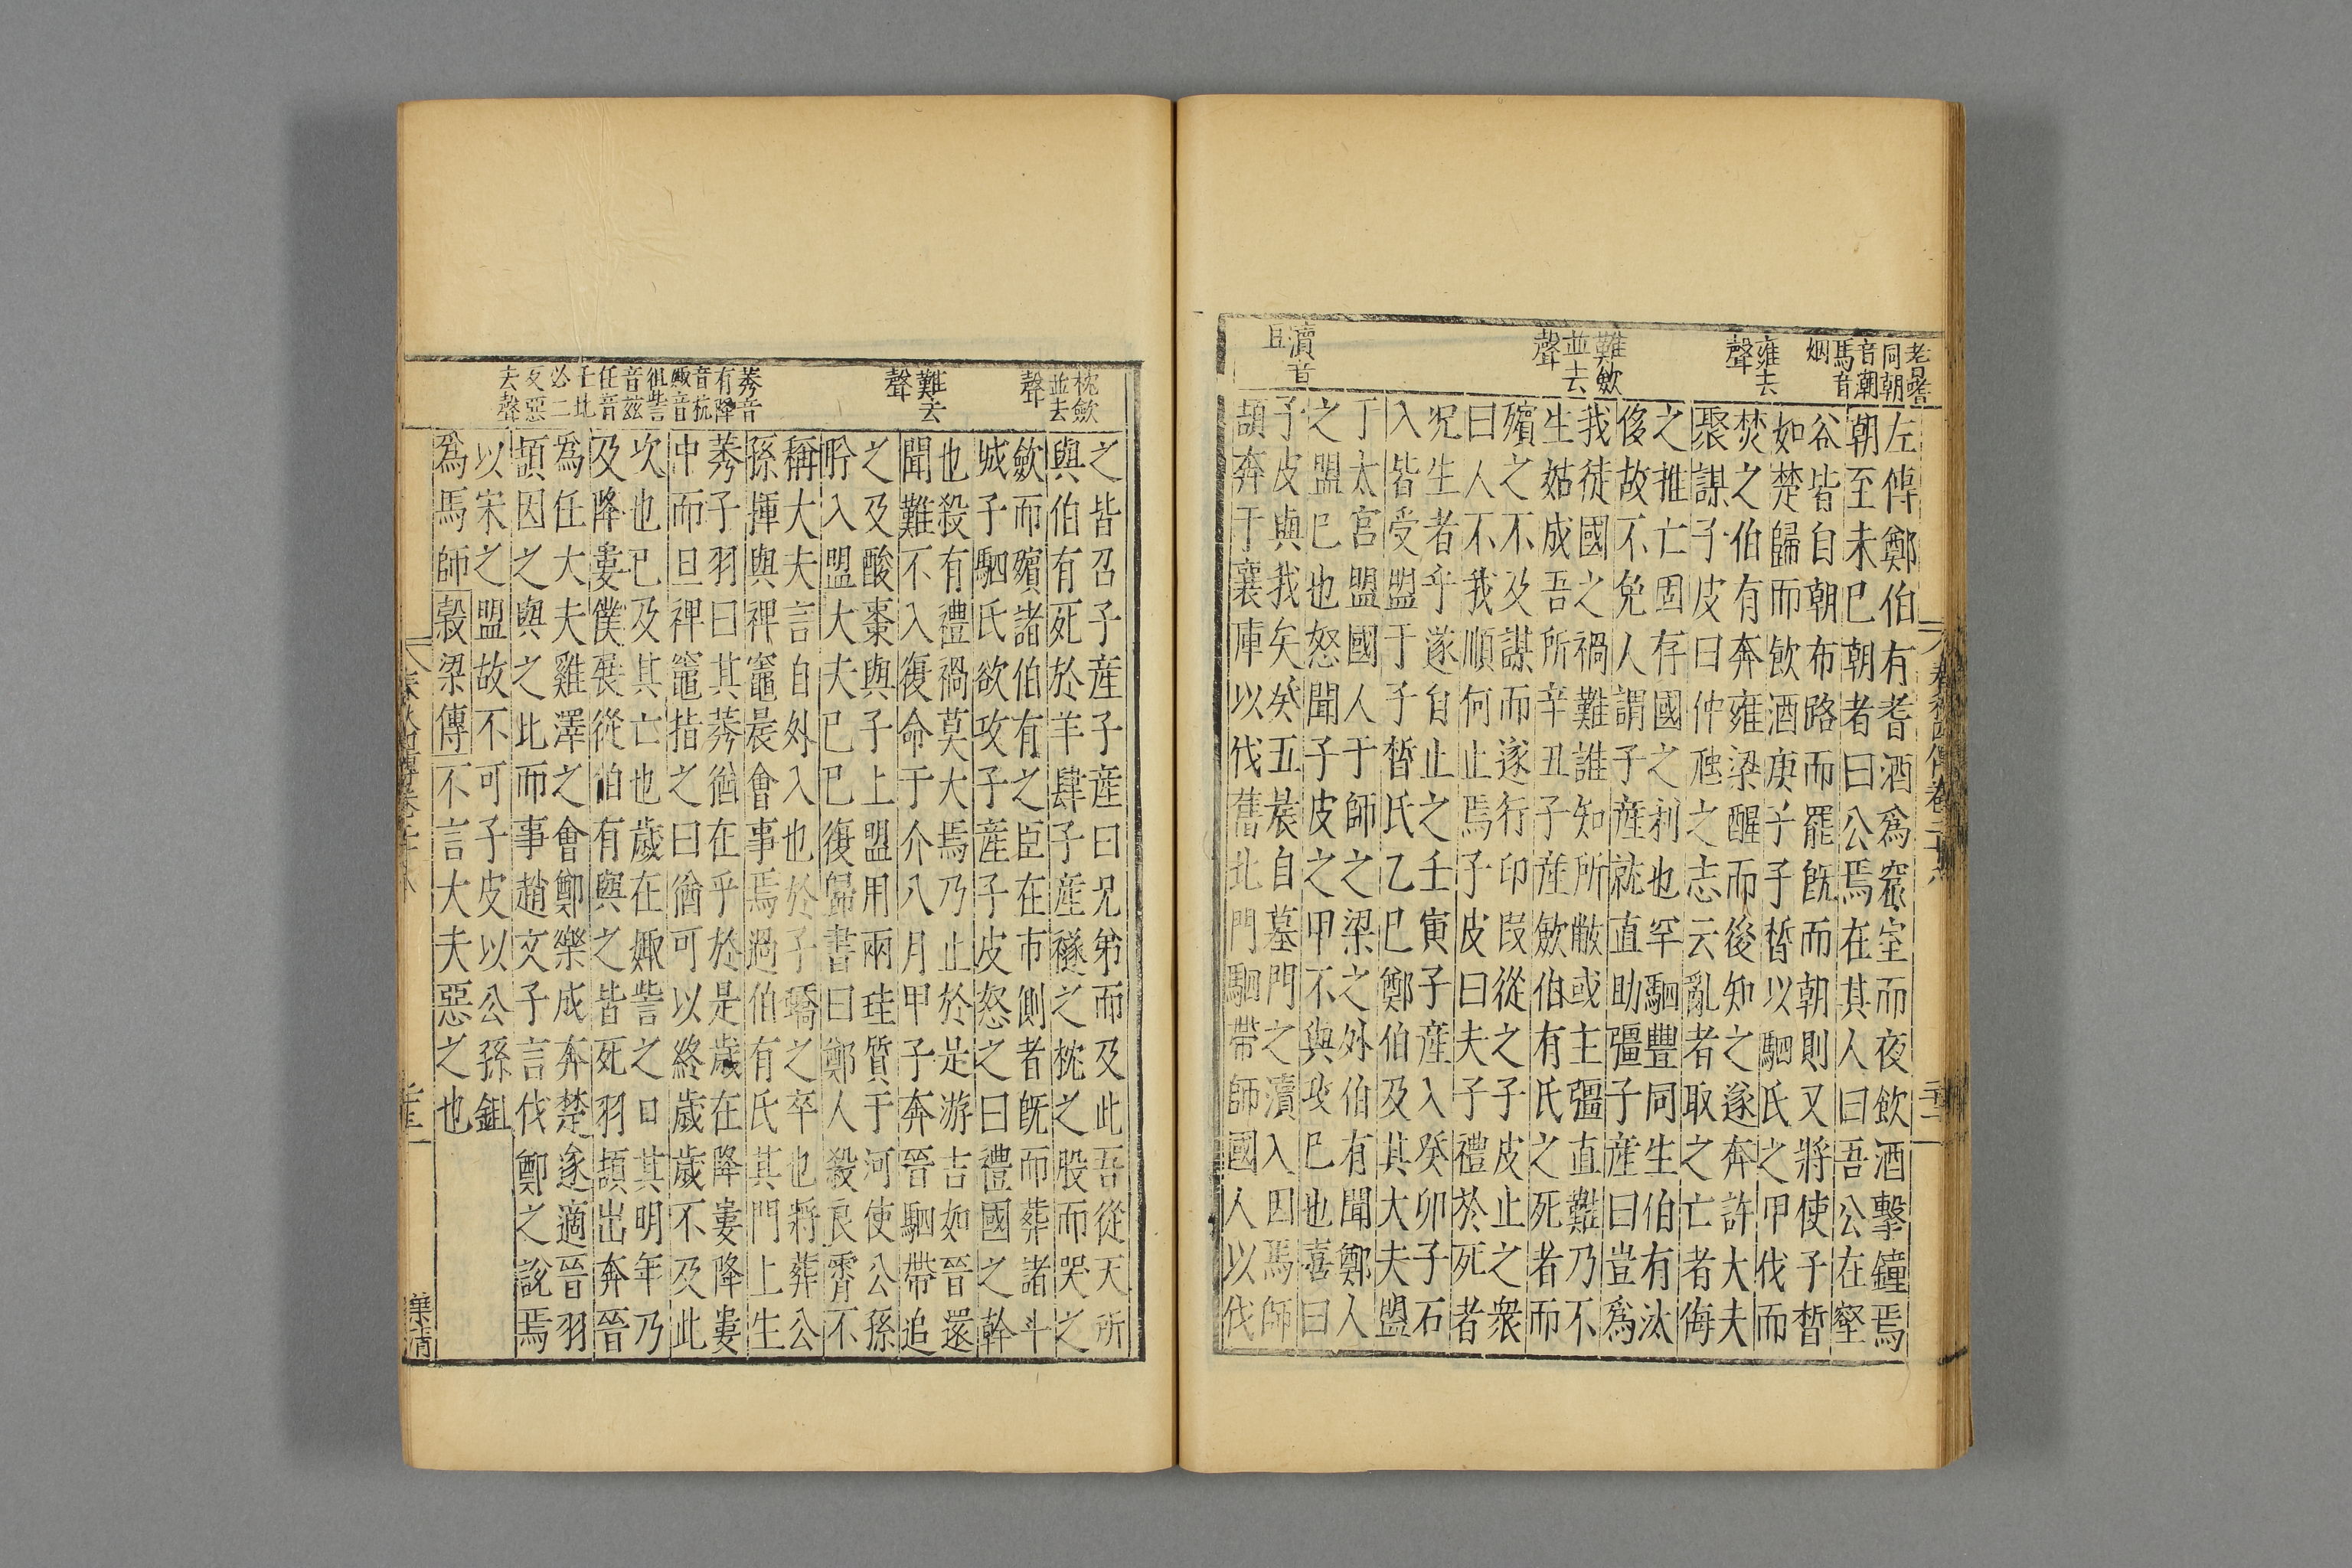 耆嗜
同朝
音朝
焉音
烟
雍去
聲
難斂
並去
聲
瀆音
豆
左傳鄭伯有耆酒爲窟室而夜飲酒擊鐘焉
朝至未巳朝者曰公焉在其人曰吾公在壑
谷皆自朝布路而罷旣而朝則又將使子晳
如楚歸而飲酒庚子子晳以駟氏之甲伐而
焚之伯有奔雍梁醒而後知之遂奔許大夫
聚謀子皮曰仲虺之志云亂者取之亡者侮
之推亡固存國之利也罕駟豐同生伯有汰
侈故不免人謂子產就直助彊子產曰豈爲
我徒國之禍難誰知所敝或主彊直難乃不
生姑成吾所辛丑子產斂伯有氏之死者而
殯之不及謀而遂行印段從之子皮止之衆
曰人不我順何止焉子皮曰夫子禮於死者
况生者乎遂自止之壬寅子產入癸卯子石
入皆受盟于子晳氏乙巳鄭伯及其大夫盟
于太宮盟國人于師之梁之外伯有聞鄭人
之盟巳也怒聞子皮之甲不與攻巳也喜曰
子皮與我矣癸丑晨自墓門之瀆入因馬師
頡奔于襄庫以伐舊北門駟帶帥國人以伐
枕斂
並去
聲
難去
聲
莠音
有降
音杭
娵音
徂訾
音兹
任音
壬比
必二
反惡
去聲
之皆召子產子產曰兄弟而及此吾從天所
與伯有死於羊肆子產襚之枕之股而哭之
斂而殯諸伯有之臣在市側者旣而葬諸斗
城子駟氏欲攻子產子皮怒之曰禮國之幹
也殺有禮禍莫大焉乃止於是游吉如晉還
聞難不入復命于介八月甲子奔晉駟帶追
之及酸棗與子上盟用兩珪質于河使公孫
肹入盟大夫巳巳復歸書曰鄭人殺良霄不
稱大夫言自外入也於子蟜之卒也將葬公
孫揮與裨竈晨會事焉過伯有氏其門上生
莠子羽曰其莠猶在乎於是歲在降婁降婁
中而旦裨竈指之曰猶可以終歲歲不及此
次也巳及其亡也歲在娵訾之口其明年乃
及降婁僕展從伯有與之皆死羽頡出奔晉
爲任大夫雞澤之會鄭樂成奔楚遂適晉羽
頡因之與之比而事趙文子言伐鄭之說焉
以宋之盟故不可子皮以公孫鉏
爲馬師穀梁傳不言大夫惡之也